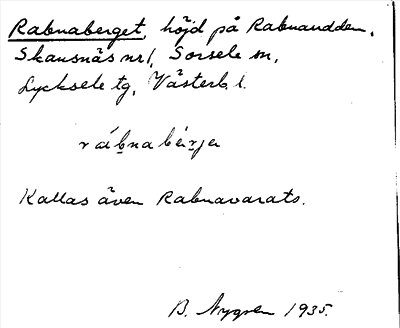 Rabnaberget, höjd på Rabnaudden,
Skansnäs nr 1, Sorsele sn,
Lycksele tg, Västerb. l.
rábnabärja
Kallas även Rabnavarats.
B. Nygren 1935.